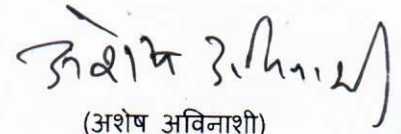 अशेष अविनाशी
(अशेष अविनाशी)